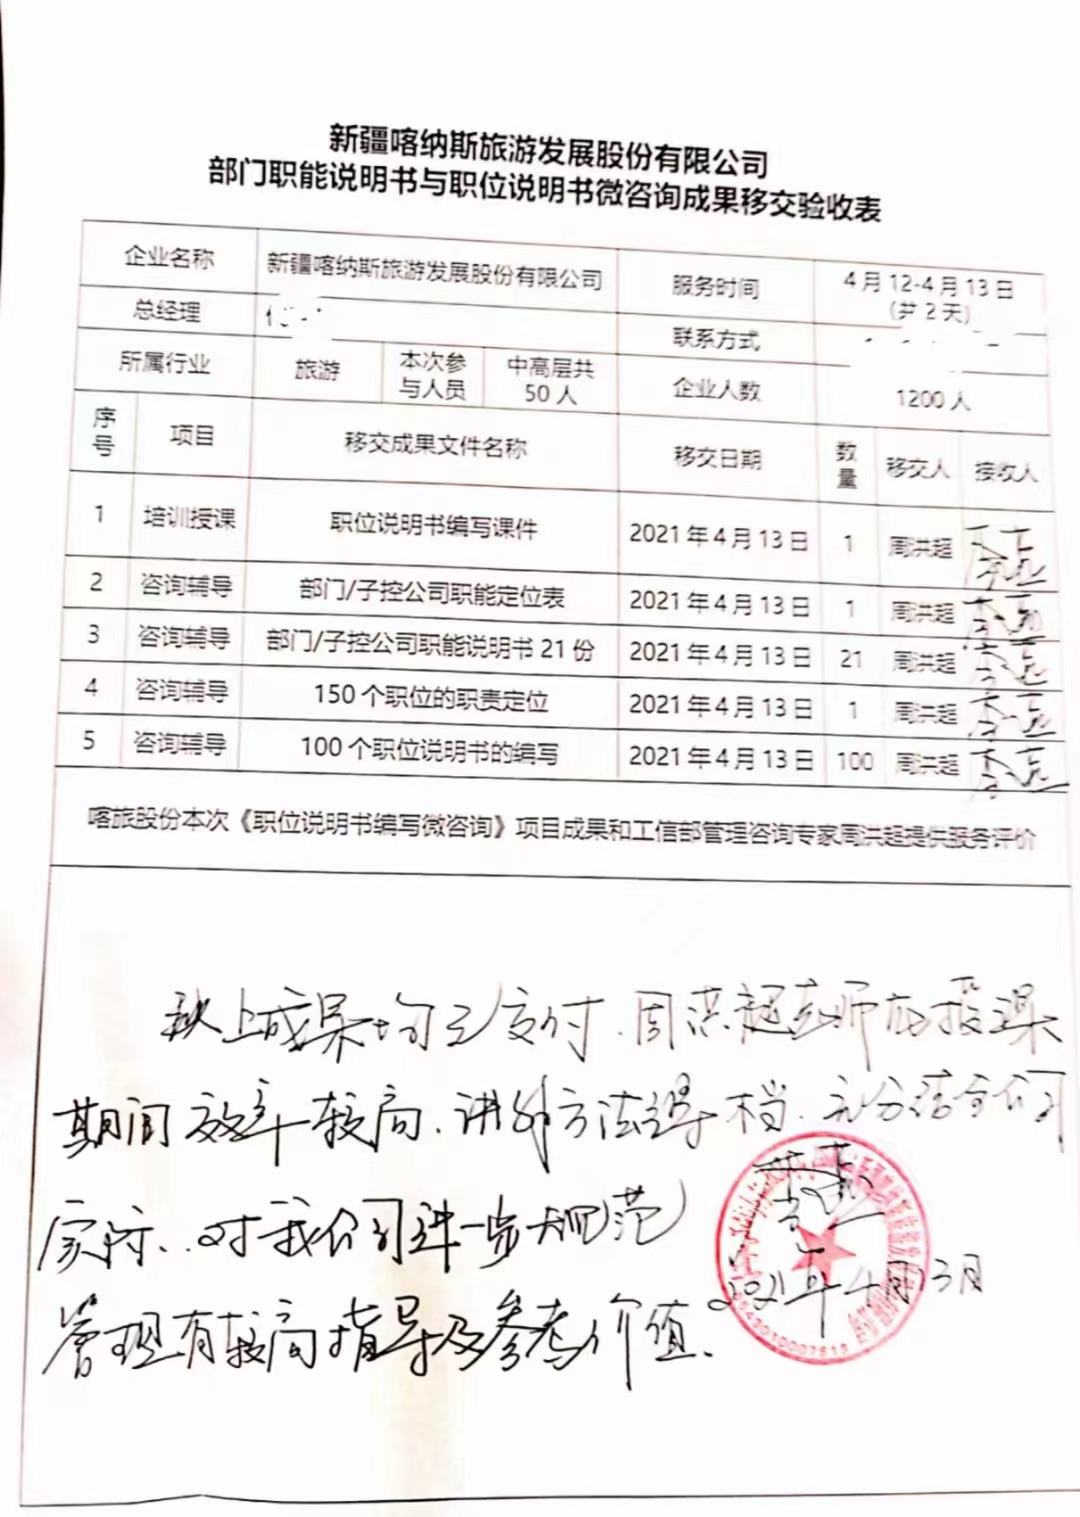 新疆喀纳斯旅游发展股份有限公司
部门职能说明书与职位说明书微咨询成果移交验收表
企业名称 新疆喀纳斯旅游发展股份有限公司 服务时间 4月12-4月13日
(共2天)
总经理 联系方式
所属行业 旅游 本次参与人员 中高层共50人 企业人数 1200人
序号 项目 移交成果文件名称 移交日期 数量 移交人 接收人
1 培训授课 职位说明书编写课件 2021年4月13日 1 周洪超
2 咨询辅导 部门/子控公司职能定位表 2021年4月13日 1 周洪超
3 咨询辅导 部门/子控公司职能说明书21份 2021年4月13日 21 周洪超
4 咨询辅导 150个职位的职责定位 2021年4月13日 1 周洪超
5 咨询辅导 100个职位说明书的编写 2021年4月13日 100 周洪超
喀旅股份本次《职位说明书编写微咨询》项目成果和工信部管理咨询专家周洪超提供服务评价
以上成果均已交付.周洪超老师在授课
期间效率较高.讲解方法得当.充分结合公司
实际..对我公司进一步规范
管理有较高指导及参考价值.
2021年4月13日